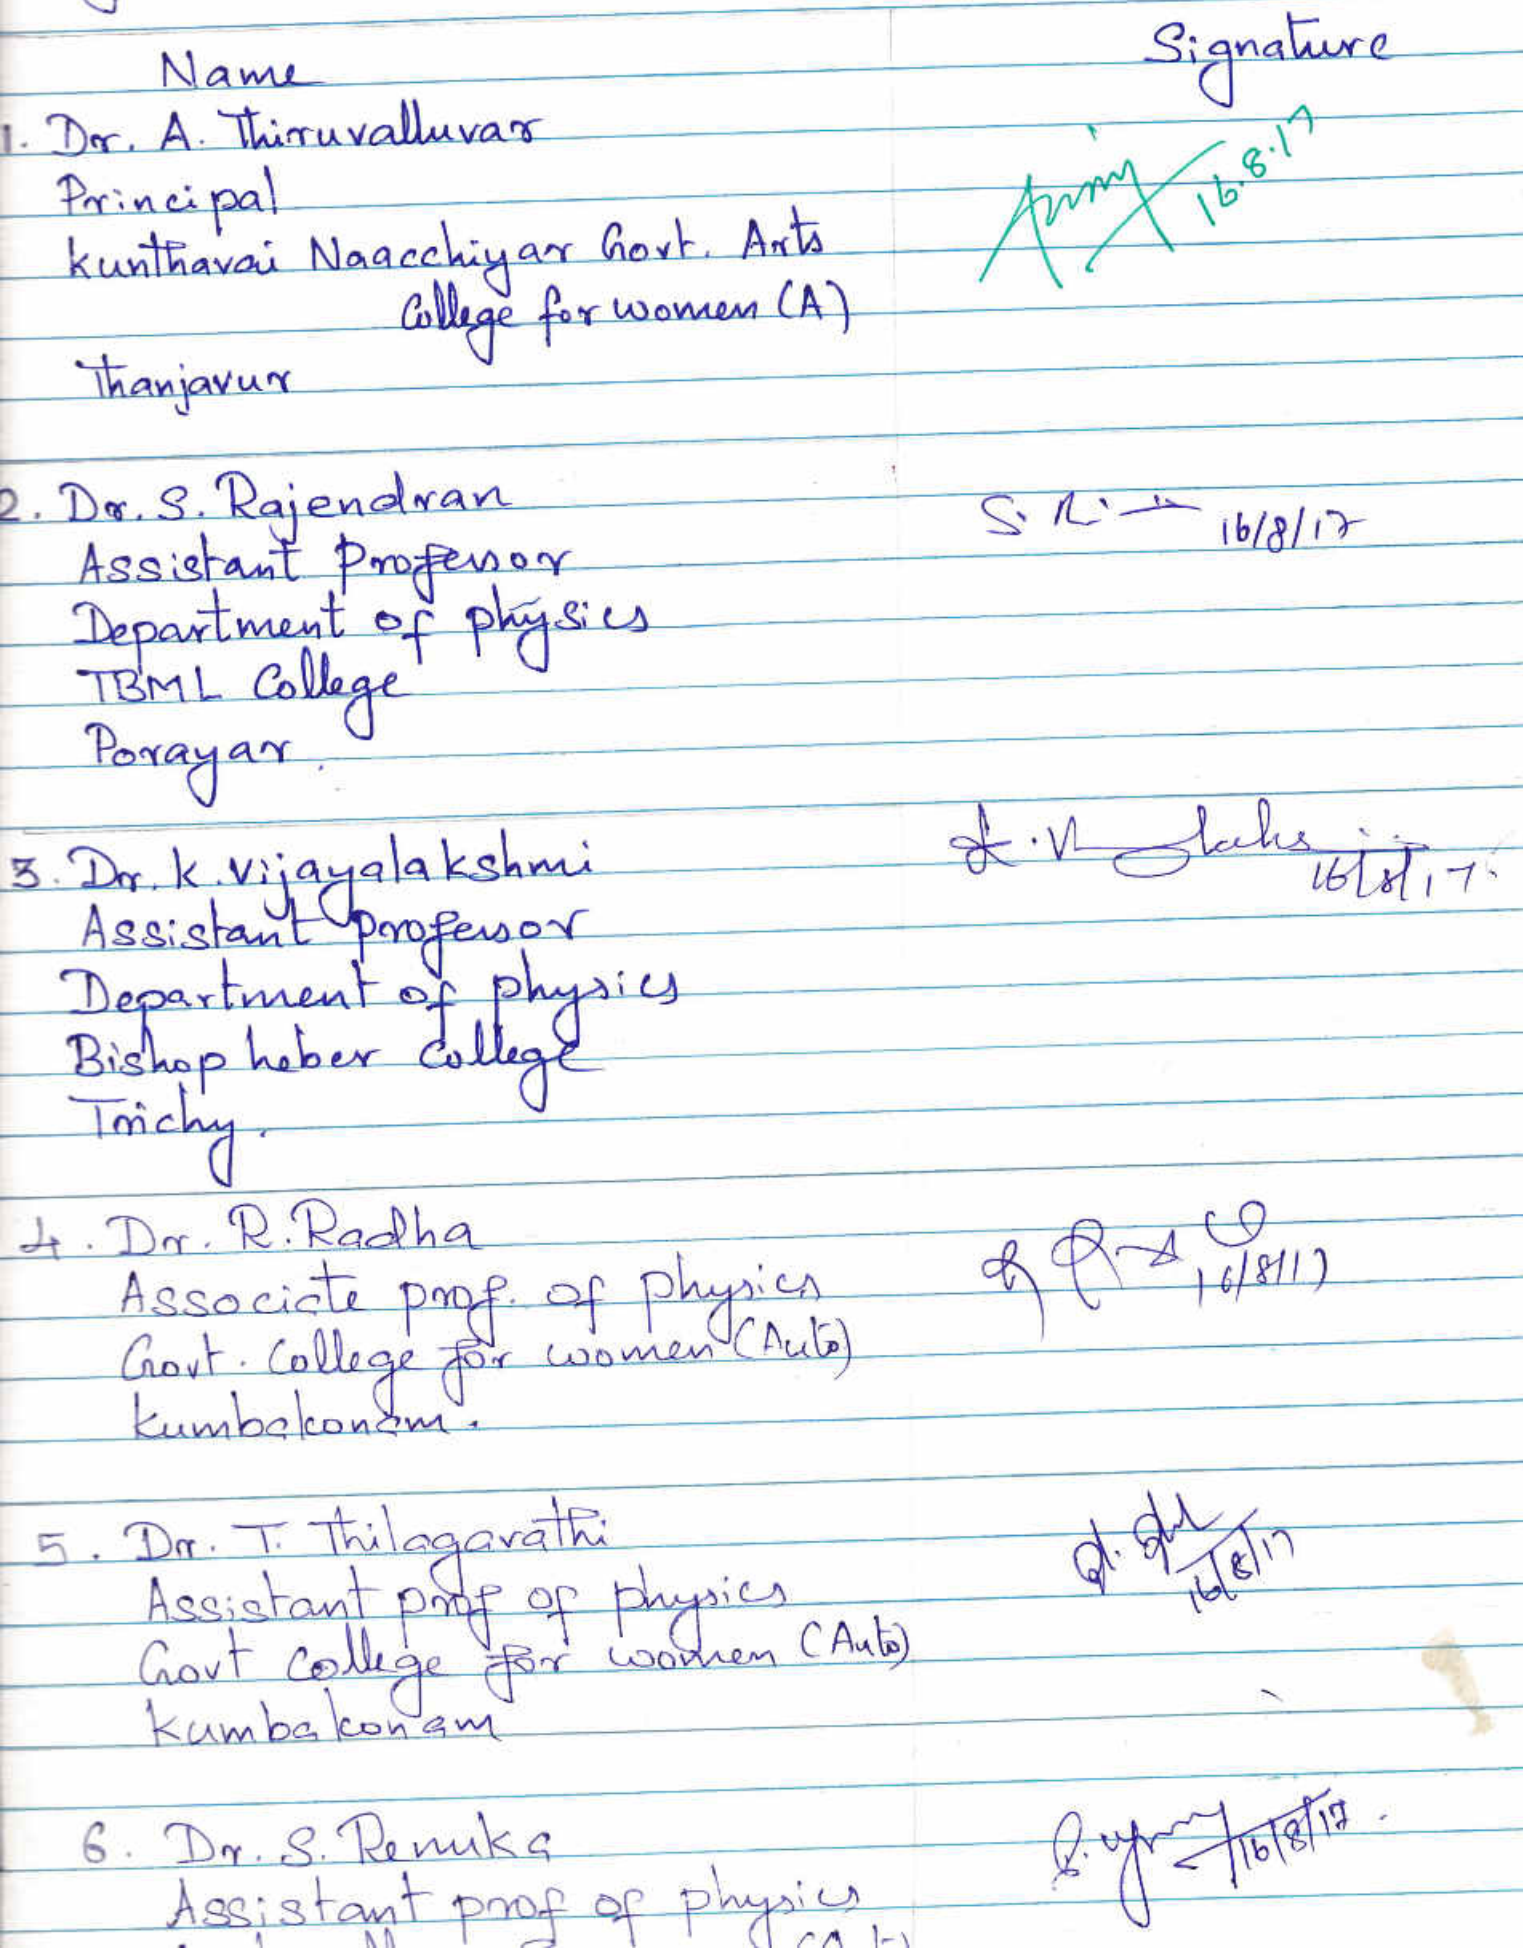 Name Signature
1. Dr. A. Thiruvalluvar
16.8.17
Principal
Kunthavai Naacchiyar Govt. Arts
College for women (A)
Thanjavur
2. Dr. S. Rajendran
16/8/17
Assistant Professor
Department of physics
TBML College
Porayar.
3. Dr. K. Vijayalakshmi
16/8/17.
Assistant professor
Department of physics
Bishop heber College
Trichy.
4. Dr. R. Radha
16/8/17
Associate prof. of physics
Govt. College for women (Auto)
Kumbakonam.
5. Dr. T. Thilagavathi
16/8/17
Assistant prof of physics
Govt College for women (Auto)
Kumbakonam
6. Dr. S. Renuka
16/8/17.
Assistant prof of physics